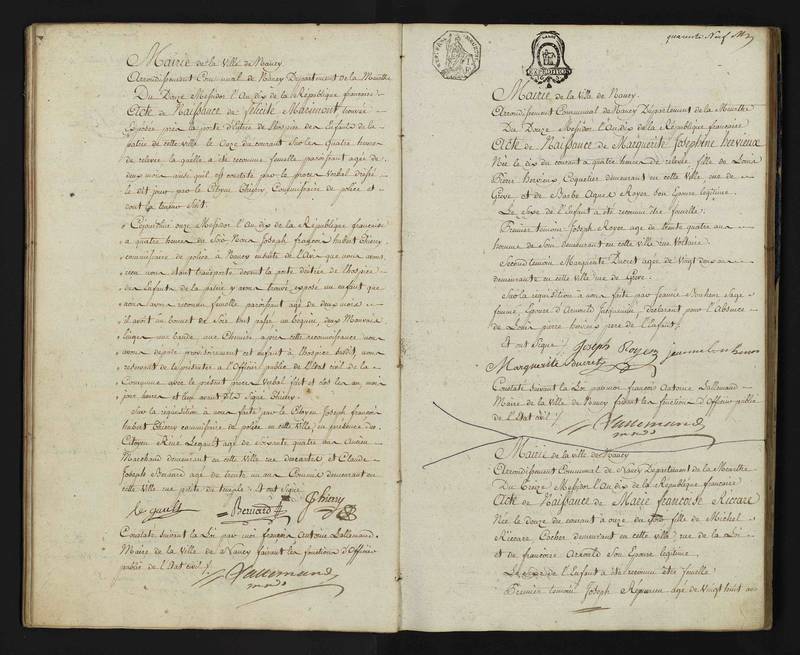 Mairie de la Ville de Nancy
Arrondissement Communal de Nancy Département de la Meurthe
Du Douze Messidor l'An dix de la République française
Acte de Naissance de félicité Macimont trouvée
Exposée près la porte d'Entrée de l'hospice des Enfants de la
patrie de cette ville le onze du courant sur les quatre heures
de relevée laquelle a été reconnue femelle paroissant agée de
deux mois ainsi qu'il est constaté par le procès verbal dressé
le dit jour par le Citoyen Thiéry, Commissaire de police et
dont la teneur suit.
Cejourd'hui onze Messidor l'An dix de la République française
a quatre heures du Soir Nous Joseph françois hubert Thiery
commissaire de police à Nancy ensuite de l'Avis que nous avons
reçu nous étant transporté devant la porte d'entrée de l'hospice
des Enfants de la patrie y avons trouvé exposé un enfant que
nous avons reconnu femelle paroissant agé de deux mois
il avoit un bonnet de Soie tout passé un béguin, deux Mauvais
linges une bande, une Chemise, après cette reconnaissance nous
avons déposé provisoirement cet enfant à l'hospice susdit, nous
réservant de la présenter à l'Officier public de l'Etat civil de la
Commune avec le présent procès Verbal fait et clos les an, mois
jour heure et lieu avant dits Signé Thiéry.
Sur la réquisition à nous faite par le Citoyen Joseph françois
hubert Thiery commissaire de police en cette ville, en présence des
Citoyens René Legault agé de soixante quatre ans Ancien
Marchand demeurant en cette Ville rue descartes et Claude
Joseph Bernard agé de trente un ans Commis demeurant en
cette Ville rue du temple. Et ont Signé
le gault Bernard Thiery
Constaté suivant la Loi par moi françois Antoine Lallemand
Maire de la Ville de Nancy faisant les fonctions d'Officier
public de l'Etat civil
Lallemand
quarante Neuf
EXPÉDITION
Mairie de la Ville de Nancy
Arrondissement Communal de Nancy Département de la Meurthe
Du Douze Messidor l'An dix de la République française
Acte de Naissance de Marguerite Josephine hervieux
Née le dix du courant à quatre heures de relevée, fille de Louis
Pierre hervieux Coquetier demeurant en cette Ville, rue de
Grève et de Barbe Agnès Royer Son Epouse légitime.
Le Sexe de l'Enfant a été reconnu être femelle.
Premier témoin Joseph Royer agé de trente quatre ans
homme de Loi demeurant en cette Ville rue Voltaire.
Second témoin Marguerite Ducret agée de Vingt deux ans
demeurante en cette Ville rue de Grève.
Sur la réquisition à nous faite par Jeanne Bonhome Sage
femme, Epouse d'Arnould Jacquemin, déclarant pour l'Absence
de Louis pierre hervieux père de l'Enfant
Et ont Signé Joseph Royer jeanne bonhome
Marguerite Ducret
Constaté suivant la Loi par moi françois Antoine Lallemand
Maire de la Ville de Nancy faisant les fonctions d'Officier public
de l'Etat civil
Lallemand
Mairie de la ville de Nancy
Arrondissement Communal de Nancy Département de la Meurthe
Du Treize Messidor l'An dix de la République française
Acte de Naissance de Marie françoise Riccare
Née le douze du courant à onze du fille de Michel
Riccare Cocher demeurant en cette ville, rue de la Loi
et de françoise Arnould Son Epouse légitime.
Le Sexe de l'Enfant a été reconnu être femelle.
Premier témoin Joseph agé de Vingt huit ans